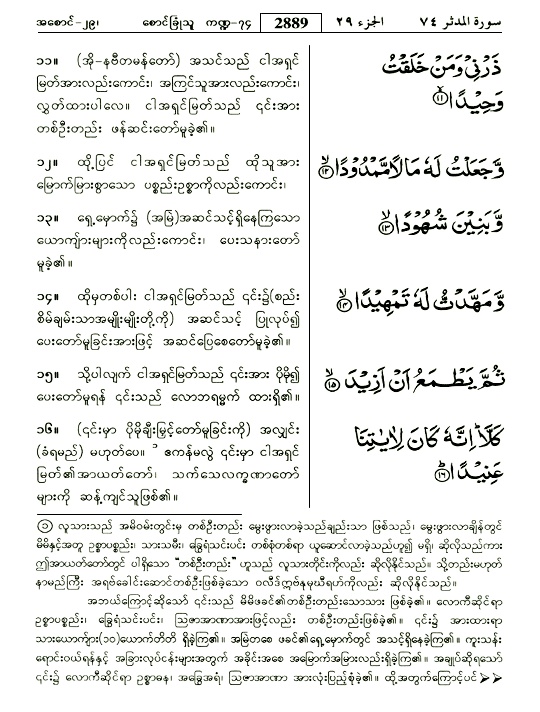 အစောင်-၂၉၊ စောင်ခြုံသူ ကဏ္ဍ-၇၄ 2889 الجزء ٢٩ سورة المدثر ٧٤
၁၁။ (အို-နဗီတမန်တော်) အသင်သည် ငါအရှင်
မြတ်အားလည်းကောင်း၊ အကြင်သူအားလည်းကောင်း၊
လွှတ်ထားပါလေ။ ငါအရှင်မြတ်သည် ၎င်းအား
တစ်ဦးတည်း ဖန်ဆင်းတော်မူခဲ့၏။
ذَرْنِي وَمَنْ خَلَقْتُ
وَحِيْدًا ﴿١١﴾
၁၂။ ထို့ပြင် ငါအရှင်မြတ်သည် ထိုသူအား
မြောက်မြားစွာသော ပစ္စည်းဥစ္စာကိုလည်းကောင်း၊
وَّجَعَلْتُ لَهٗ مَالًا مَّمْدُوْدًا ﴿١٢﴾
၁၃။ ရှေ့မှောက်၌ (အမြဲ)အဆင်သင့်ရှိနေကြသော
ယောက်ျားများကိုလည်းကောင်း၊ ပေးသနားတော်
မူခဲ့၏။
وَّبَنِيْنَ شُهُوْدًا ﴿١٣﴾
၁၄။ ထိုမှတစ်ပါး ငါအရှင်မြတ်သည် ၎င်း၌(စည်း
စိမ်ချမ်းသာအမျိုးမျိုးတို့ကို) အဆင်သင့် ပြုလုပ်၍
ပေးတော်မူခြင်းအားဖြင့် အဆင်ပြေစေတော်မူခဲ့၏။
وَّمَهَّدْتُّ لَهٗ تَمْهِيْدًا ﴿١٤﴾
၁၅။ သို့ပါလျက် ငါအရှင်မြတ်သည် ၎င်းအား ပိုမို၍
ပေးတော်မူရန် ၎င်းသည် လောဘရမ္မက် ထားရှိ၏။
ثُمَّ يَطْمَعُ اَنْ اَزِيْدَ ﴿١٥﴾
၁၆။ (၎င်းမှာ ပိုမိုချီးမြှင့်တော်မူခြင်းကို) အလျှင်း
(ခံရမည်) မဟုတ်ပေ။ ဧကန်မလွဲ ၎င်းမှာ ငါအရှင်
မြတ်၏အာယတ်တော်၊ သက်သေလက္ခဏာတော်
များကို ဆန့်ကျင်သူဖြစ်၏။
كَلَّا اِنَّهٗ كَانَ لِاٰيٰتِنَا
عَنِيْدًا ﴿١٦﴾
လူသားသည် အမိဝမ်းတွင်းမှ တစ်ဦးတည်း မွေးဖွားလာခဲ့သည်ချည်းသာ ဖြစ်သည်၊ မွေးဖွားလာချိန်တွင်
မိမိနှင့်အတူ ဥစ္စာပစ္စည်း၊ သားသမီး၊ ခြွေရံသင်းပင်း တစ်စုံတစ်ရာ ယူဆောင်လာခဲ့သည်ဟူ၍ မရှိ၊ ဆိုလိုသည်ကား
ဤအာယတ်တော်တွင် ပါရှိသော “တစ်ဦးတည်း” ဟူသည် လူသားတိုင်းကိုလည်း ဆိုလိုနိုင်သည်။ သို့တည်းမဟုတ်
နာမည်ကြီး အရပ်ခေါင်းဆောင်တစ်ဦးဖြစ်ခဲ့သော ဝလီဒ်ဣဗ်နုမုဃီရဟ်ကိုလည်း ဆိုလိုနိုင်သည်။
အဘယ်ကြောင့်ဆိုသော် ၎င်းသည် မိမိဖခင်၏တစ်ဦးတည်းသောသား ဖြစ်ခဲ့၏။ လောကီဆိုင်ရာ
ဥစ္စာပစ္စည်း၊ ခြွေရံသင်းပင်း၊ ဩဇာအာဏာအားဖြင့်လည်း တစ်ဦးတည်းဖြစ်ခဲ့၏။ ၎င်း၌ အားထားရာ
သားယောက်ျား(၁၀)ယောက်တိတိ ရှိခဲ့ကြ၏။ အမြဲတစေ ဖခင်၏ရှေ့မှောက်တွင် အသင့်ရှိနေခဲ့ကြ၏။ ကူးသန်း
ရောင်းဝယ်ရန်နှင့် အခြားလုပ်ငန်းများအတွက် အခိုင်းအစေ အမြောက်အမြားလည်းရှိခဲ့ကြ၏။ အချုပ်ဆိုရသော်
၎င်း၌ လောကီဆိုင်ရာ ဥစ္စာဓန၊ အခြွေအရံ၊ ဩဇာအာဏာ အားလုံးပြည့်စုံခဲ့၏။ ထို့အတွက်ကြောင့်ပင် ➤➤